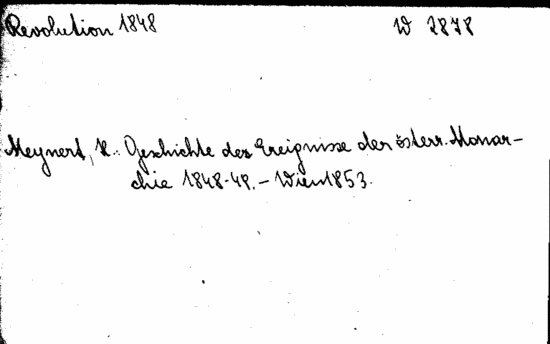 Revolution 1848 W 2878
Meynert, H.: Geschichte der Ereignisse der österr. Monar-
chie 1848-49. – Wien 1853.